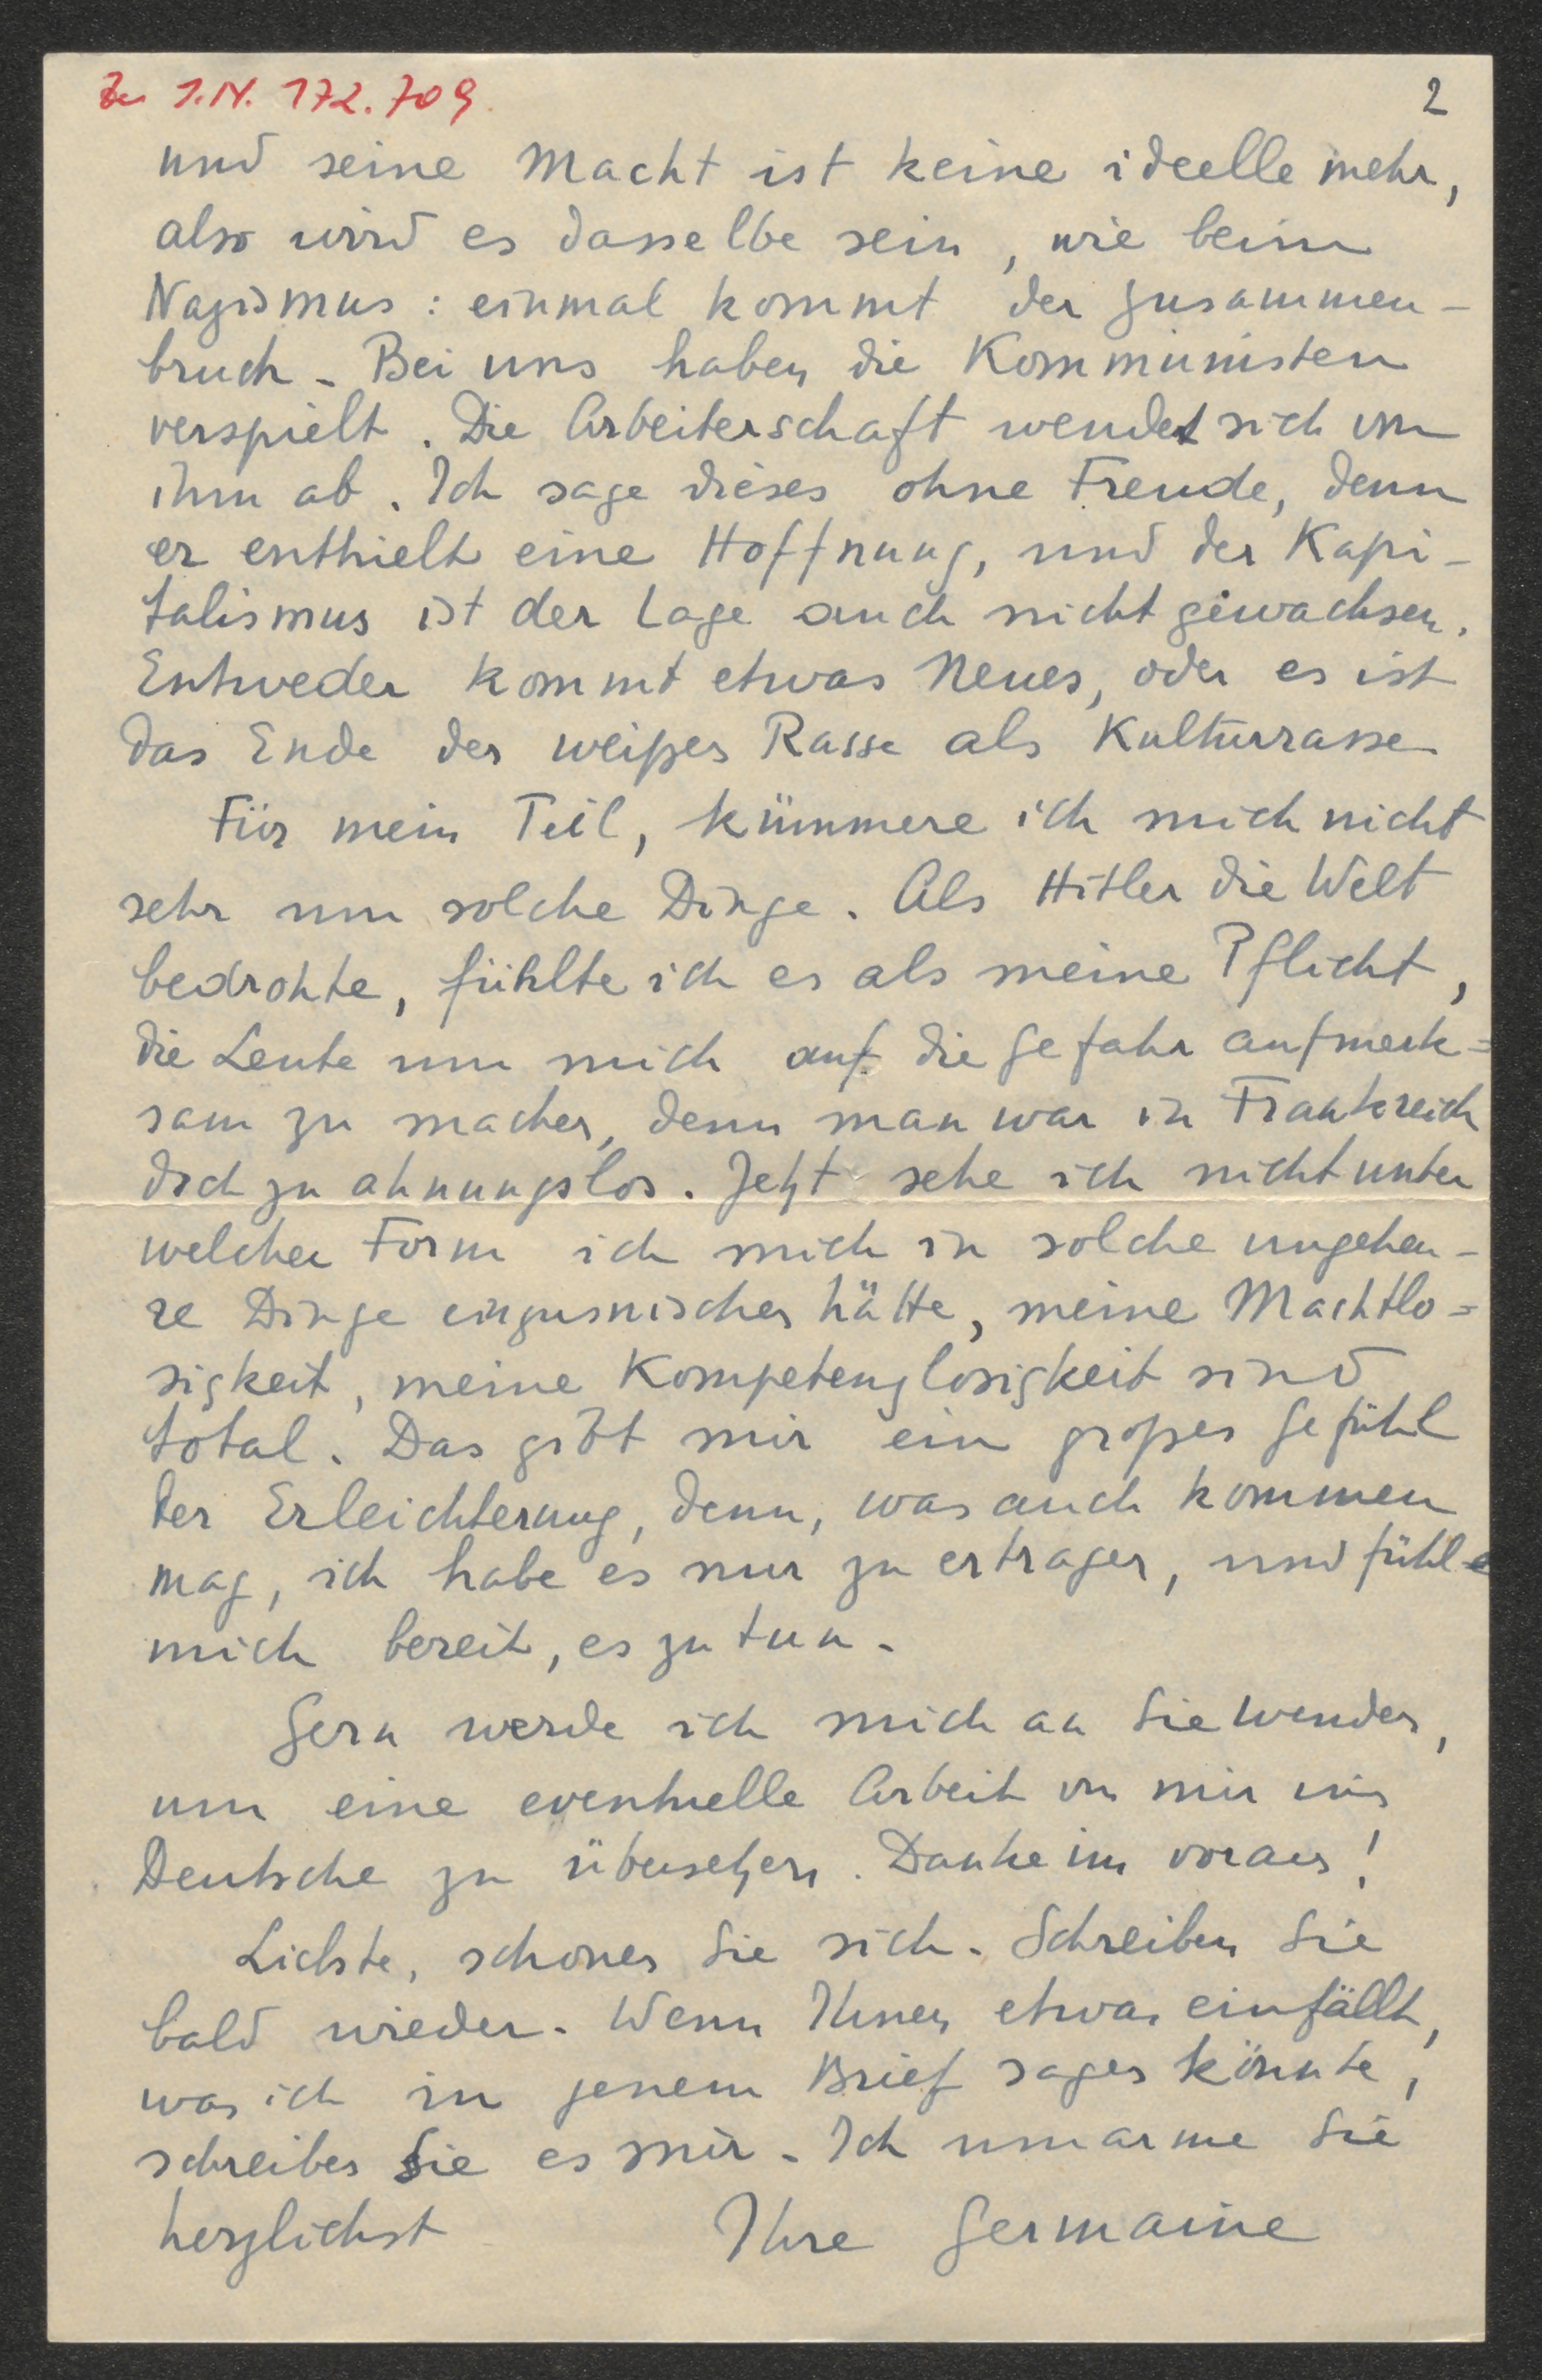 Zu I.N. 172.709
2
und seine Macht ist keine ideelle mehr,
also wird es dasselbe sein, wie beim
Nazismus: einmal kommt der Zusammen-
bruch. Bei uns haben die Kommunisten
verspielt. Die Arbeiterschaft wendet sich von
ihm ab. Ich sage dieses ohne Freude, denn
er enthielt eine Hoffnung, und der Kapi-
talismus ist der Lage auch nicht gewachsen.
Entweder kommt etwas Neues, oder es ist
das Ende der weißen Rasse als Kulturrasse
Für mein Teil, kümmere ich mich nicht
sehr um solche Dinge. Als Hitler die Welt
bedrohte, fühlte ich es als meine Pflicht,
die Leute um mich auf die Gefahr aufmerk=
sam zu machen, denn man war in Frankreich
doch zu ahnungslos. Jetzt sehe ich nicht unter
welcher Form ich mich in solche ungeheu-
re Dinge einzumischen hätte, meine Machtlo=
sigkeit, meine Kompetenzlosigkeit sind
total. Das gibt mir ein großes Gefühl
der Erleichterung, denn, was auch kommen
mag, ich habe es nur zu ertragen, und fühle
mich bereit, es zu tun.
Gern werde ich mich an Sie wenden,
um eine eventuelle Arbeit von mir ins
Deutsche zu übersetzen. Danke im voraus!
Liebste, schonen Sie sich. Schreiben Sie
bald wieder. Wenn Ihnen etwas einfällt,
was ich in jenem Brief sagen könnte,
schreiben Sie es mir. Ich umarme Sie
herzlichst Ihre Germaine